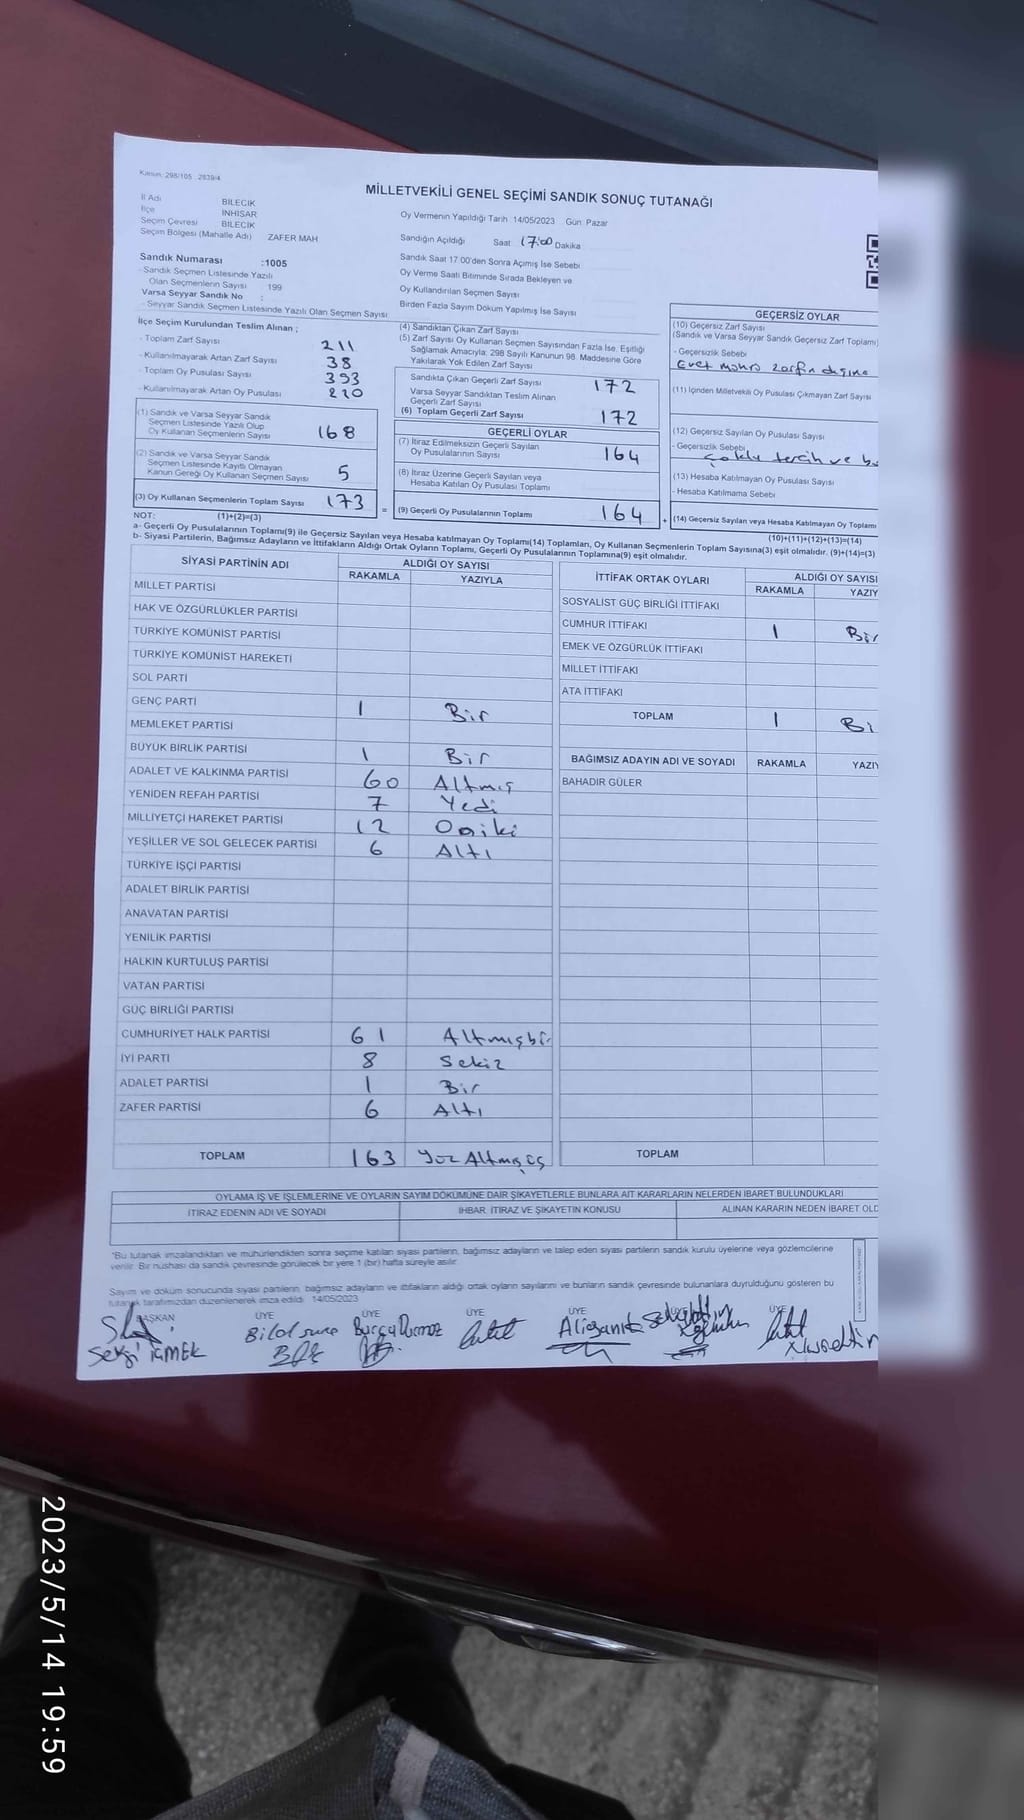 Kanun: 298/105 , 2839/4
MİLLETVEKİLİ GENEL SEÇİMİ SANDIK SONUÇ TUTANAĞI
İl Adı BİLECİK
İlçe İNHİSAR
Seçim Çevresi BİLECİK
Seçim Bölgesi (Mahalle Adı) ZAFER MAH
Oy Vermenin Yapıldığı Tarih 14/05/2023 Gün: Pazar
Sandığın Açıldığı Saat 17:00 Dakika
Sandık Numarası :1005
- Sandık Seçmen Listesinde Yazılı
Olan Seçmenlerin Sayısı 199
Varsa Seyyar Sandık No :
- Seyyar Sandık Seçmen Listesinde Yazılı Olan Seçmen Sayısı
Sandık Saat 17:00'den Sonra Açılmış İse Sebebi
Oy Verme Saati Bitiminde Sırada Bekleyen ve
Oy Kullandırılan Seçmen Sayısı
Birden Fazla Sayım Döküm Yapılmış İse Sayısı
İlçe Seçim Kurulundan Teslim Alınan ;
- Toplam Zarf Sayısı 211
- Kullanılmayarak Artan Zarf Sayısı 38
- Toplam Oy Pusulası Sayısı 393
- Kullanılmayarak Artan Oy Pusulası 220
(1) Sandık ve Varsa Seyyar Sandık
Seçmen Listesinde Yazılı Olup
Oy Kullanan Seçmenlerin Sayısı 168
(2) Sandık ve Varsa Seyyar Sandık
Seçmen Listesinde Kayıtlı Olmayan
Kanun Gereği Oy Kullanan Seçmen Sayısı 5
(3) Oy Kullanan Seçmenlerin Toplam Sayısı 173
(4) Sandıktan Çıkan Zarf Sayısı
(5) Zarf Sayısı Oy Kullanan Seçmen Sayısından Fazla İse, Eşitliği
Sağlamak Amacıyla; 298 Sayılı Kanunun 98. Maddesine Göre
Yakılarak Yok Edilen Zarf Sayısı
Sandıkta Çıkan Geçerli Zarf Sayısı 172
Varsa Seyyar Sandıktan Teslim Alınan
Geçerli Zarf Sayısı
(6) Toplam Geçerli Zarf Sayısı 172
GEÇERLİ OYLAR
(7) İtiraz Edilmeksizin Geçerli Sayılan
Oy Pusulalarının Sayısı 164
(8) İtiraz Üzerine Geçerli Sayılan veya
Hesaba Katılan Oy Pusulası Toplamı
= (9) Geçerli Oy Pusulalarının Toplamı 164 +
GEÇERSİZ OYLAR
(10) Geçersiz Zarf Sayısı
(Sandık ve Varsa Seyyar Sandık Geçersiz Zarf Toplamı)
- Geçersizlik Sebebi
Evet mührü zarfın dışına
(11) İçinden Milletvekili Oy Pusulası Çıkmayan Zarf Sayısı
(12) Geçersiz Sayılan Oy Pusulası Sayısı
- Geçersizlik Sebebi
Çoklu tercih ve
(13) Hesaba Katılmayan Oy Pusulası Sayısı
- Hesaba Katılmama Sebebi
(14) Geçersiz Sayılan veya Hesaba Katılmayan Oy Toplamı
NOT: (1)+(2)=(3) (10)+(11)+(12)+(13)=(14)
a- Geçerli Oy Pusulalarının Toplamı(9) ile Geçersiz Sayılan veya Hesaba katılmayan Oy Toplamı(14) Toplamları, Oy Kullanan Seçmenlerin Toplam Sayısına(3) eşit olmalıdır. (9)+(14)=(3)
b- Siyasi Partilerin, Bağımsız Adayların ve İttifakların Aldığı Ortak Oyların Toplamı, Geçerli Oy Pusulalarının Toplamına(9) eşit olmalıdır.
SİYASİ PARTİNİN ADI ALDIĞI OY SAYISI
RAKAMLA YAZIYLA
MİLLET PARTİSİ
HAK VE ÖZGÜRLÜKLER PARTİSİ
TÜRKİYE KOMÜNİST PARTİSİ
TÜRKİYE KOMÜNİST HAREKETİ
SOL PARTİ
GENÇ PARTİ 1 Bir
MEMLEKET PARTİSİ
BÜYÜK BİRLİK PARTİSİ 1 Bir
ADALET VE KALKINMA PARTİSİ 60 Altmış
YENİDEN REFAH PARTİSİ 7 Yedi
MİLLİYETÇİ HAREKET PARTİSİ 12 Oniki
YEŞİLLER VE SOL GELECEK PARTİSİ 6 Altı
TÜRKİYE İŞÇİ PARTİSİ
ADALET BİRLİK PARTİSİ
ANAVATAN PARTİSİ
YENİLİK PARTİSİ
HALKIN KURTULUŞ PARTİSİ
VATAN PARTİSİ
GÜÇ BİRLİĞİ PARTİSİ
CUMHURİYET HALK PARTİSİ 61 Altmışbir
İYİ PARTİ 8 Sekiz
ADALET PARTİSİ 1 Bir
ZAFER PARTİSİ 6 Altı
TOPLAM 163 Yüz Altmış üç
İTTİFAK ORTAK OYLARI ALDIĞI OY SAYISI
RAKAMLA YAZIY
SOSYALİST GÜÇ BİRLİĞİ İTTİFAKI
CUMHUR İTTİFAKI 1 Bir
EMEK VE ÖZGÜRLÜK İTTİFAKI
MİLLET İTTİFAKI
ATA İTTİFAKI
TOPLAM 1 Bi
BAĞIMSIZ ADAYIN ADI VE SOYADI RAKAMLA YAZIY
BAHADIR GÜLER
TOPLAM
OYLAMA İŞ VE İŞLEMLERİNE VE OYLARIN SAYIM DÖKÜMÜNE DAİR ŞİKAYETLERLE BUNLARA AİT KARARLARIN NELERDEN İBARET BULUNDUKLARI
İTİRAZ EDENİN ADI VE SOYADI İHBAR, İTİRAZ VE ŞİKAYETİN KONUSU ALINAN KARARIN NEDEN İBARET OLD
*Bu tutanak imzalandıktan ve mühürlendikten sonra seçime katılan siyasi partilerin, bağımsız adayların ve talep eden siyasi partilerin sandık kurulu üyelerine veya gözlemcilerine
verilir. Bir nüshası da sandık çevresinde görülecek bir yere 1 (bir) hafta süreyle asılır.
Sayım ve döküm sonucunda siyasi partilerin, bağımsız adayların ve ittifakların aldığı ortak oyların sayılarını ve bunların sandık çevresinde bulunanlara duyrulduğunu gösteren bu
tutanak tarafımızdan düzenlenerek imza edildi. 14/05/2023
BAŞKAN ÜYE ÜYE ÜYE ÜYE ÜYE ÜYE
Burçu Durmaz
2023/5/14 19:59